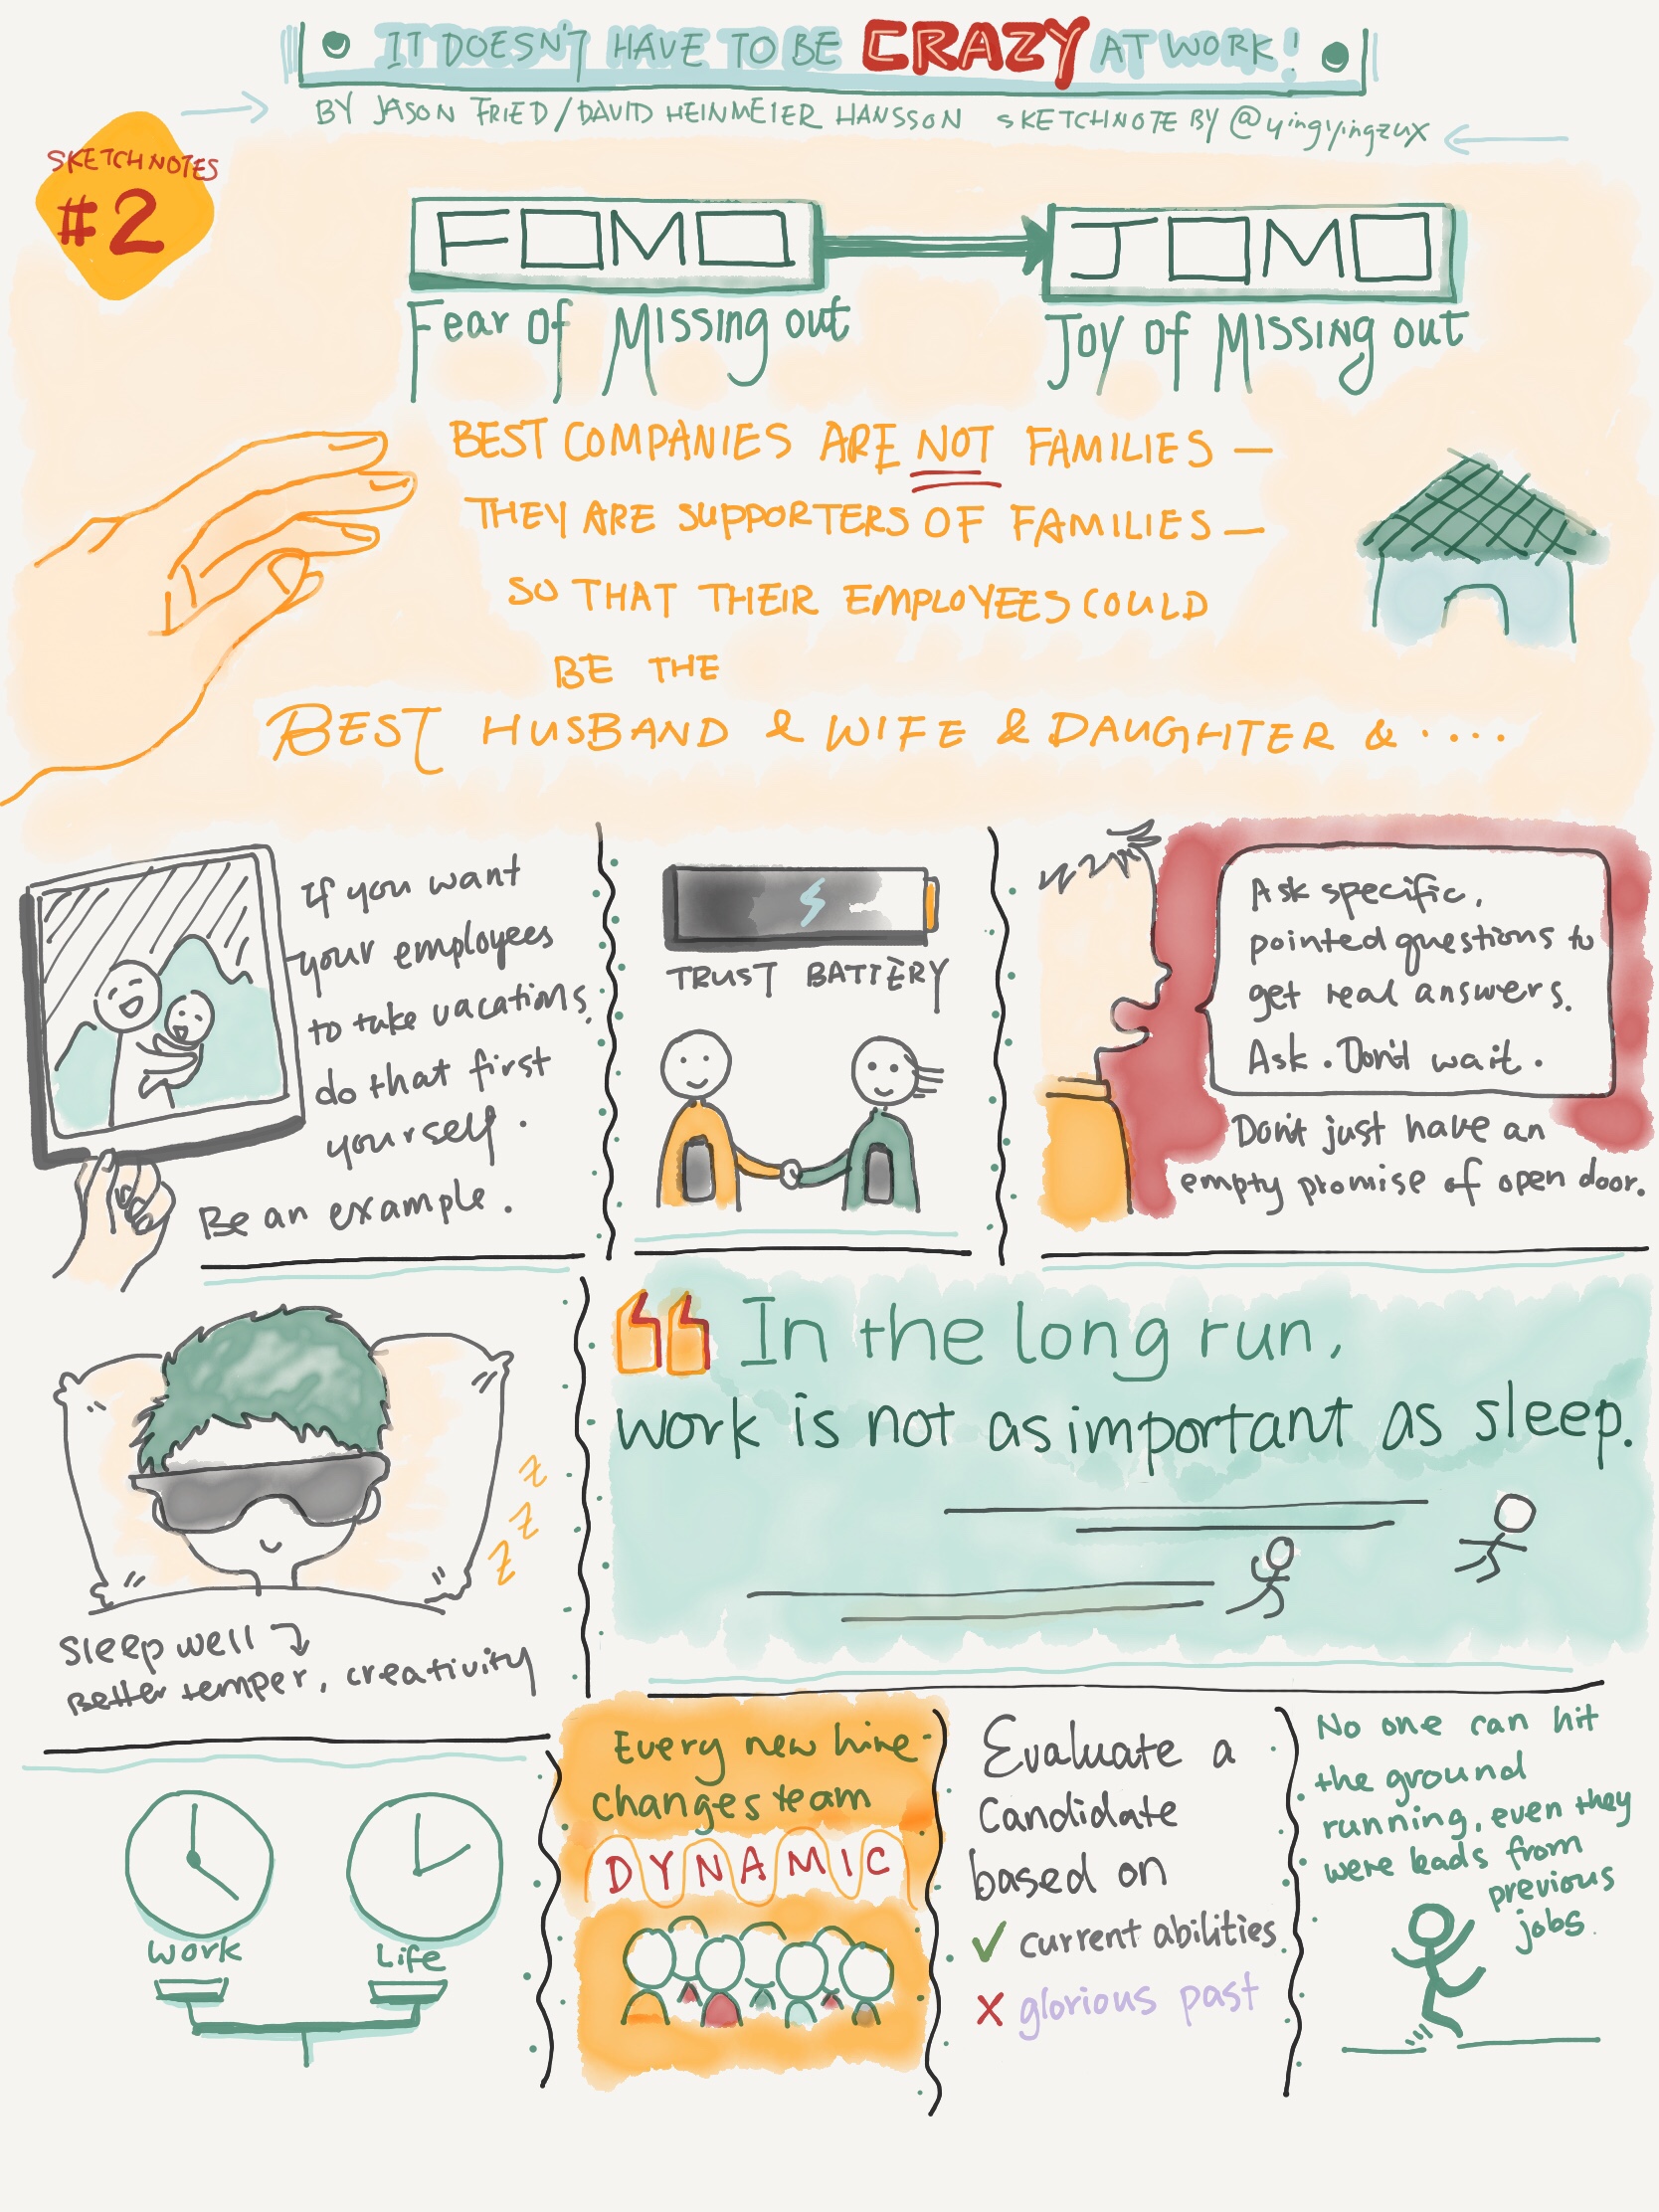 IT DOESN'T HAVE TO BE CRAZY AT WORK!
BY JASON FRIED/DAVID HEINMEIER HANSSON SKETCHNOTE BY @yingyingzux
SKETCHNOTES
#2
FOMO
JOMO
Fear of Missing out
Joy of Missing out
BEST COMPANIES ARE NOT FAMILIES —
THEY ARE SUPPORTERS OF FAMILIES —
SO THAT THEIR EMPLOYEES COULD
BE THE
BEST HUSBAND & WIFE & DAUGHTER & ....
If you want
your employees
to take vacations,
do that first
yourself.
Be an example.
TRUST BATTERY
Ask specific,
pointed questions to
get real answers.
Ask. Don't wait.
Don't just have an
empty promise of open door.
z
z
z
Sleep well
Better temper, creativity
“ In the long run,
work is not as important as sleep.
Work
Life
Every new hire
changes team
DYNAMIC
Evaluate a
Candidate
based on
✓ current abilities
x glorious past
No one can hit
the ground
running, even they
were leads from
previous
jobs.